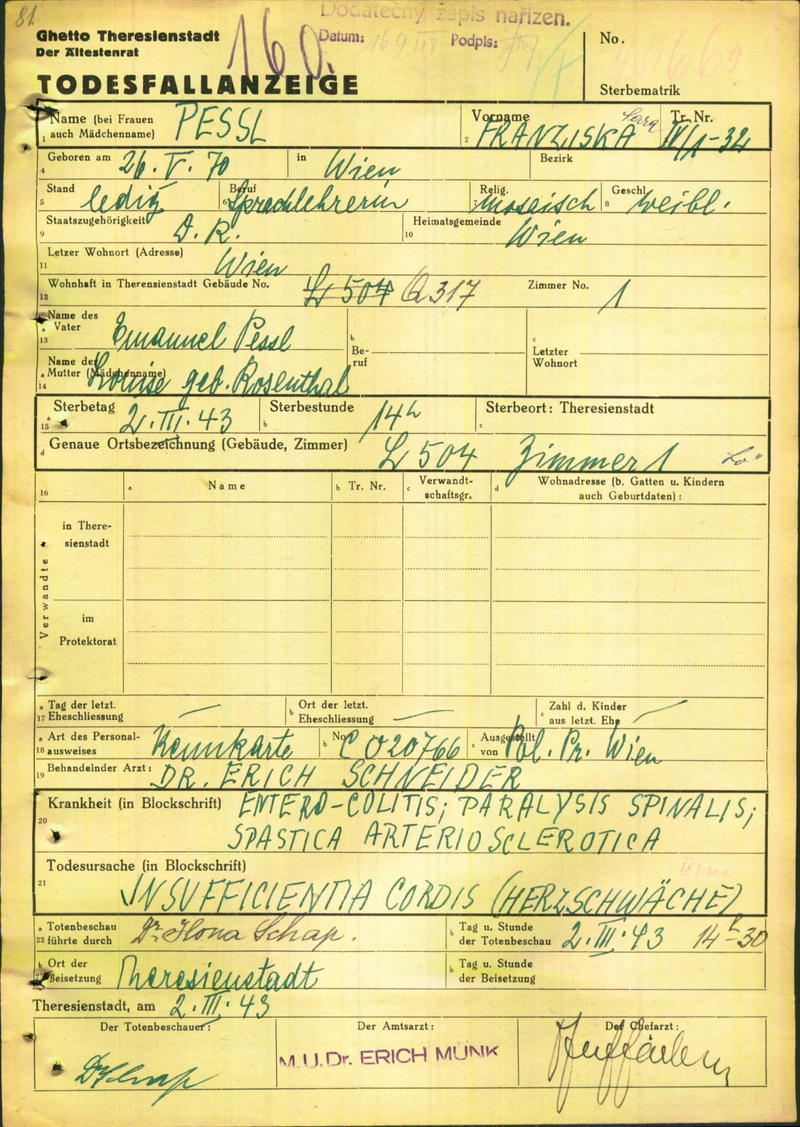 81
Dodatečný zápis nařízen.
Datum: Podpis:
160.
Ghetto Theresienstadt
Der Ältestenrat
TODESFALLANZEIGE
No.
Sterbematrik
1 Name (bei Frauen auch Mädchenname) PESSL 2 Vorname FRANZISKA Sara 3 Tr. Nr. IV/1-32
4 Geboren am 26. V. 70 in Wien Bezirk
5 Stand ledig 6 Beruf Sprachlehrerin 7 Relig. mosaisch 8 Geschl. weibl.
9 Staatszugehörigkeit D. R. 10 Heimatsgemeinde Wien
11 Letzer Wohnort (Adresse) Wien
12 Wohnhaft in Therensienstadt Gebäude No. L 504 Q 317 Zimmer No. 1
13 a Name des Vater Emanuel Pessl b Beruf c Letzter Wohnort
14 a Name der Mutter (Mädchenname) Louise geb. Rosenthal
15 a Sterbetag 2. III. 43 b Sterbestunde 14h c Sterbeort: Theresienstadt
d Genaue Ortsbezeichnung (Gebäude, Zimmer) L 504 Zimmer 1
16 a Name b Tr. Nr. c Verwandtschaftsgr. d Wohnadresse (b. Gatten u. Kindern auch Geburtdaten):
Verwandte
in Theresienstadt
im Protektorat
17 a Tag der letzt. Eheschliessung — b Ort der letzt. Eheschliessung — c Zahl d. Kinder aus letzt. Ehe —
18 a Art des Personalausweises Kennkarte b No. C 020766 c Ausgestellt von Pol. Pr. Wien
19 Behandelnder Arzt: DR. ERICH SCHNEIDER
20 Krankheit (in Blockschrift) ENTERO-COLITIS; PARALYSIS SPINALIS;
SPASTICA ARTERIOSCLEROTICA
21 Todesursache (in Blockschrift)
INSUFFICIENTIA CORDIS (HERZSCHWÄCHE)
22 a Totenbeschau führte durch Dr. Ilona Schap. b Tag u. Stunde der Totenbeschau 2. III. 43 14h30
23 a Ort der Beisetzung Theresienstadt b Tag u. Stunde der Beisetzung
Theresienstadt, am 2. III. 43
Der Totenbeschauer: Der Amtsarzt: Der Chefarzt:
Dr Schap M.U.Dr. ERICH MUNK